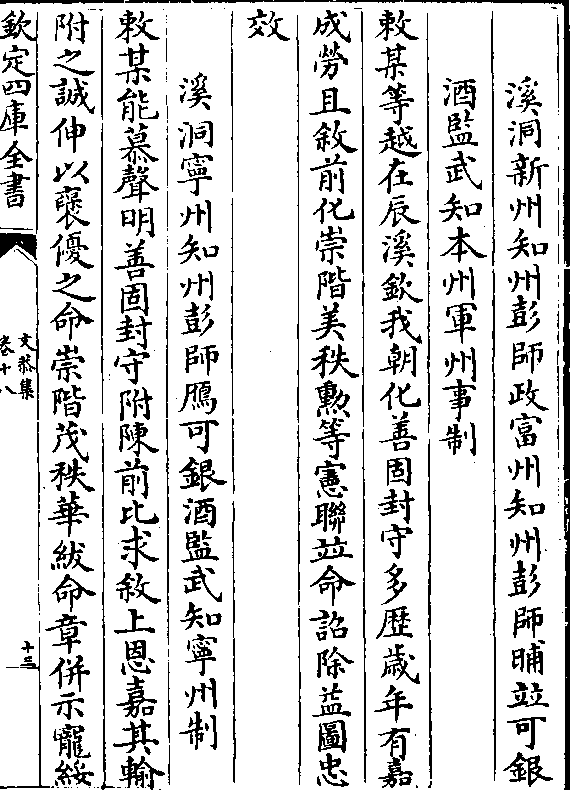 溪洞新州知州彭師政富州知州彭師晡竝可銀
酒監武知本州軍州事制
敕某等越在辰溪欽我朝化善固封守多歴歳年有嘉
成勞且敘前化崇階美秩勲等憲聯竝命詔除益圖忠
效
溪洞寧州知州彭師鴈可銀酒監武知寧州制
敕某能慕聲明善固封守附陳前比求敘上恩嘉其輸
附之誠伸以襃優之命崇階茂秩華紱命章併示寵綏
欽定四庫全書
文恭集
卷十八
十三